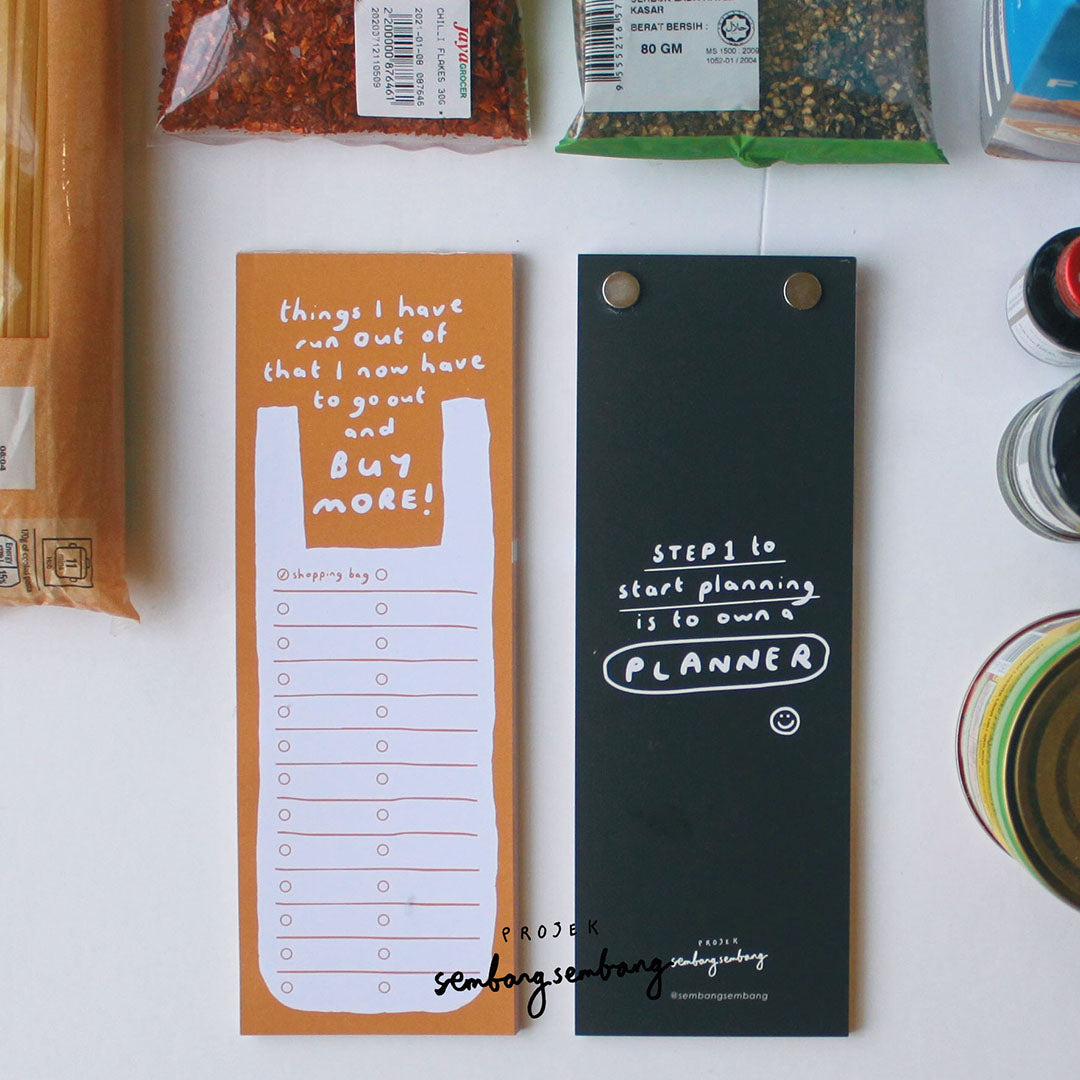 Jaya
GROCER
CHILLI FLAKES 30G
2021-01-08 087646
2 200000 876461
20200712110509
KASAR
BERAT BERSIH :
80 GM
MS 1500 : 2009
1052-01 / 2004
9 555216 157
things I have
run out of
that I now have
to go out
and
BUY
MORE!
shopping bag
STEP 1 to
start planning
is to own a
PLANNER
PROJEK
sembangsembang
@sembangsembang
PROJEK
sembangsembang
08:04
Energy